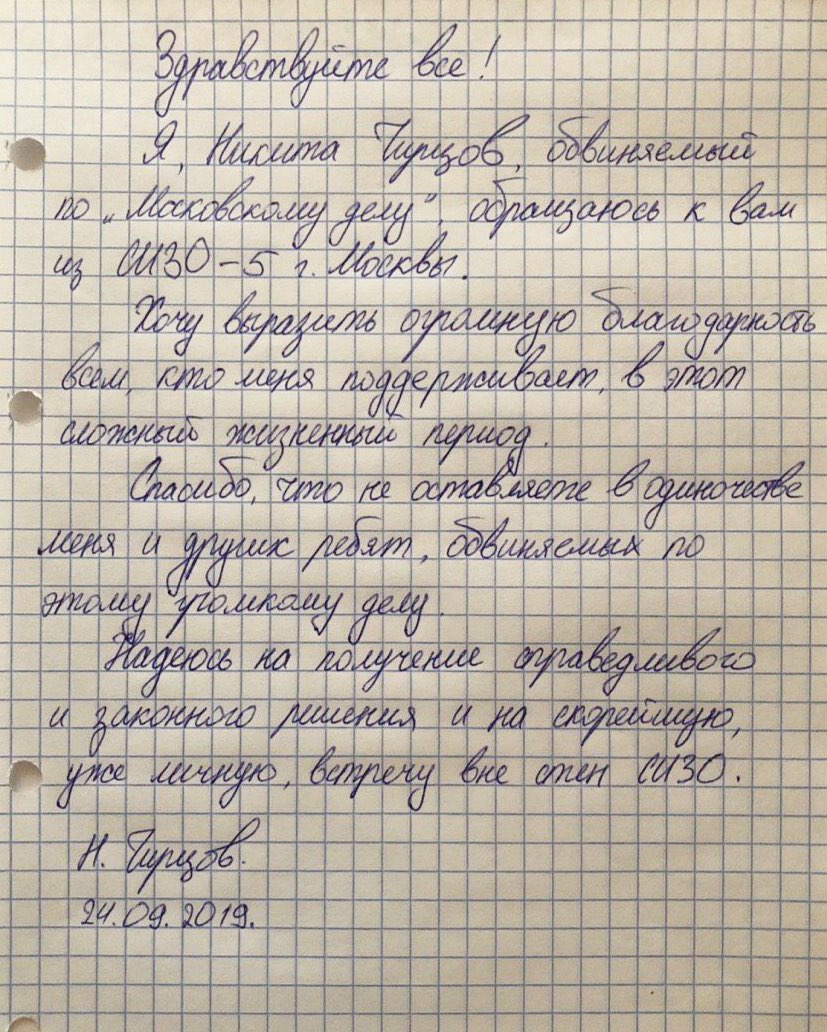 Здравствуйте все!
Я, Никита Чирцов, обвиняемый
по „Московскому делу", обращаюсь к вам
из СИЗО-5 г. Москвы.
Хочу выразить огромную благодарность
всем, кто меня поддерживает, в этот
сложный жизненный период.
Спасибо, что не оставляете в одиночестве
меня и других ребят, обвиняемых по
этому громкому делу.
Надеюсь на получение справедливого
и законного решения и на скорейшую,
уже личную, встречу вне стен СИЗО.
Н. Чирцов.
24.09.2019.